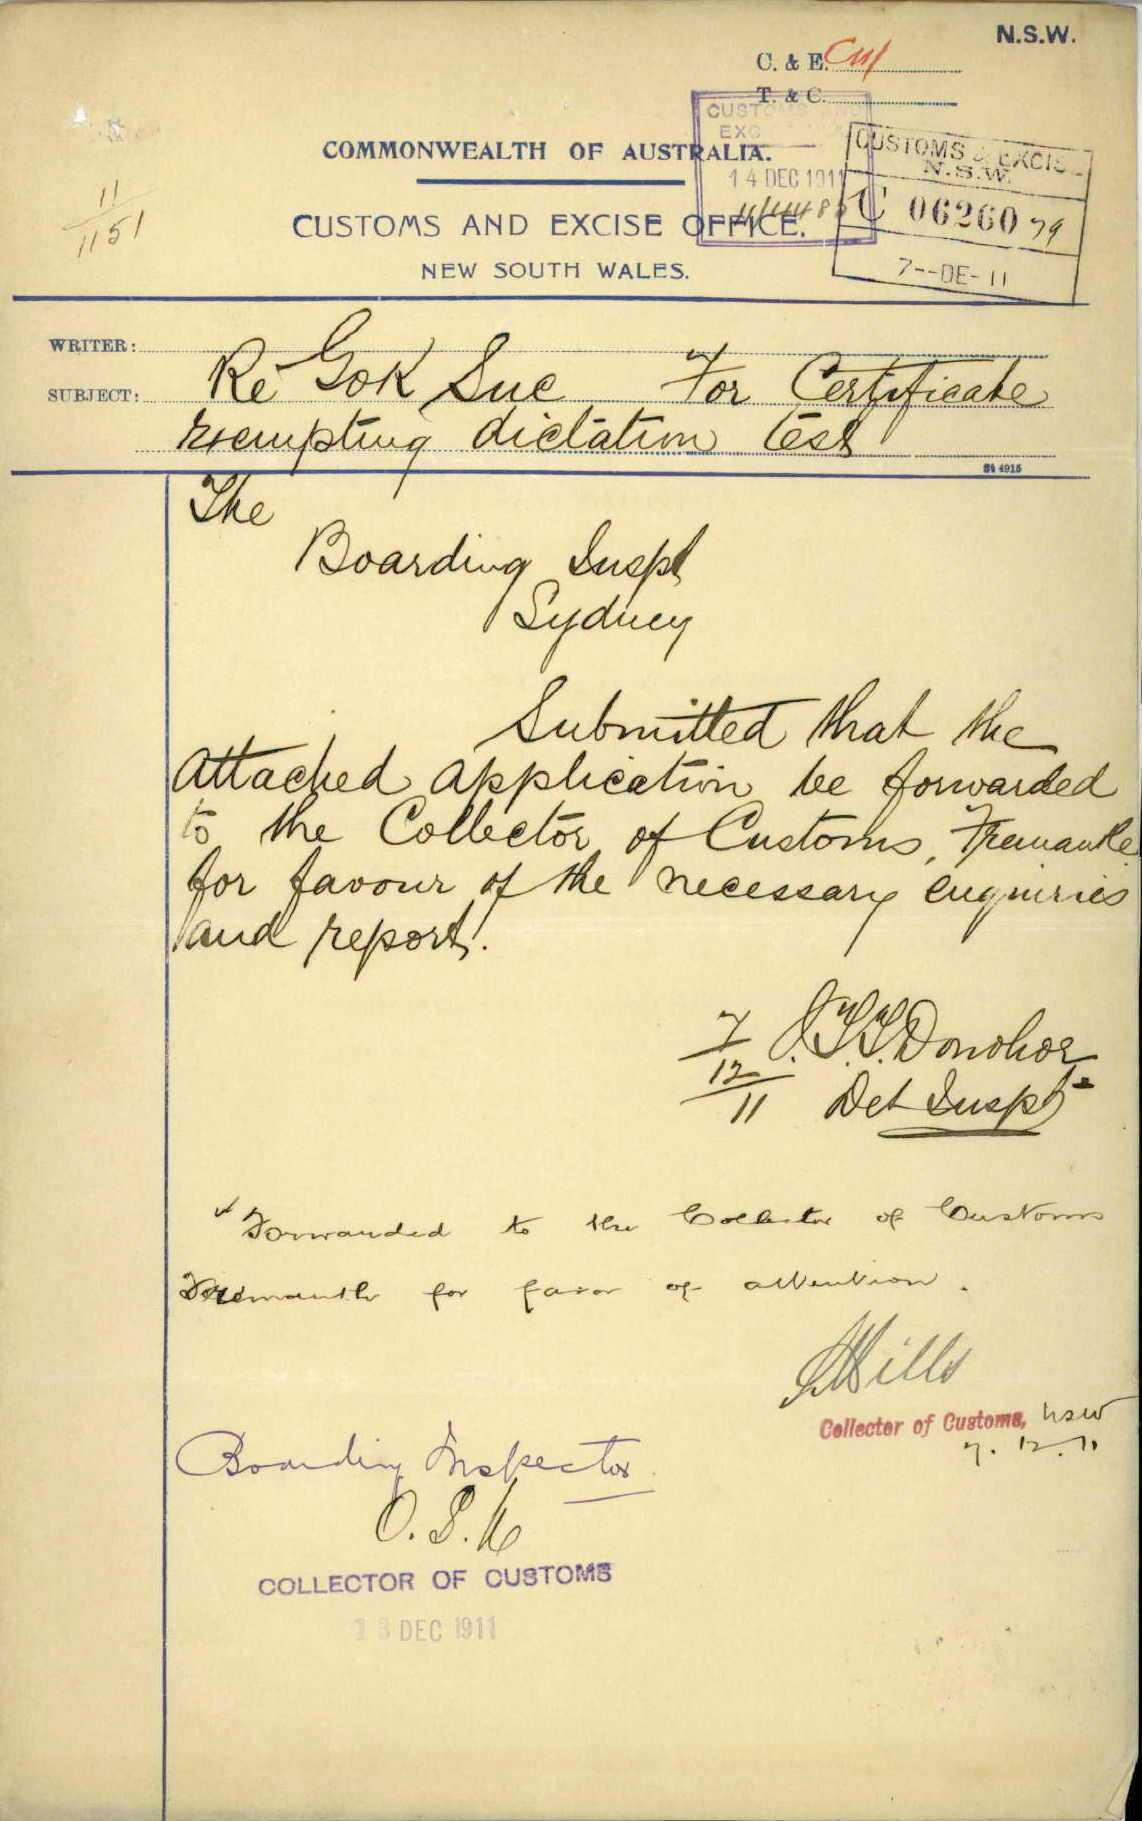 N.S.W.
C. & E.
T. & C.
CUSTOMS
EXC
14 DEC 1911
CUSTOMS & EXCISE
N.S.W.
C 06260 79
7--DE-11
COMMONWEALTH OF AUSTRALIA.
11
1151
CUSTOMS AND EXCISE OFFICE.
NEW SOUTH WALES.
WRITER:
SUBJECT: Re Gok Sue For Certificate
exempting dictation test
St 4915
The
Boarding Inspt
Sydney
Submitted that the
attached application be forwarded
to the Collector of Customs, Fremantle
for favour of the necessary enquiries
and report.
7/12/11 J.T.T. Donohoe
Det Inspr
Forwarded to the Collector of Customs
Fremantle for favor of attention.
Mills
Collector of Customs, NSW
7.12.11
Boarding Inspector
COLLECTOR OF CUSTOMS
13 DEC 1911